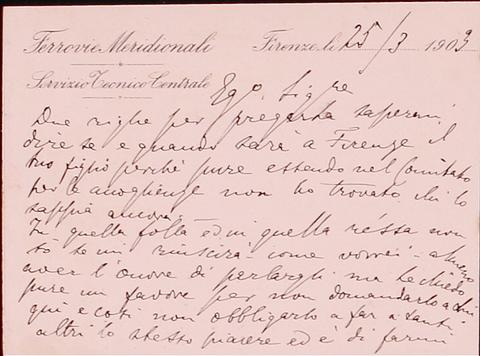 Ferrovie Meridionali Firenze, li 25/3 1903
Servizio Tecnico Centrale
Egr. Sigre
Due righe per pregarla sapermi
dire se e quando sarà a Firenze il
suo figlio perchè pure essendo nel Comitato
per le accoglienze non ho trovato chi lo
sappia ancora.
In quella folla ed in quella ressa non
so se mi riuscirà - come vorrei - almeno
aver l'onore di parlargli ma le chiedo
pure un favore per non domandarlo a Lui
qui e così non obbligarlo a far a tanti
altri lo stesso piacere ed è di farmi